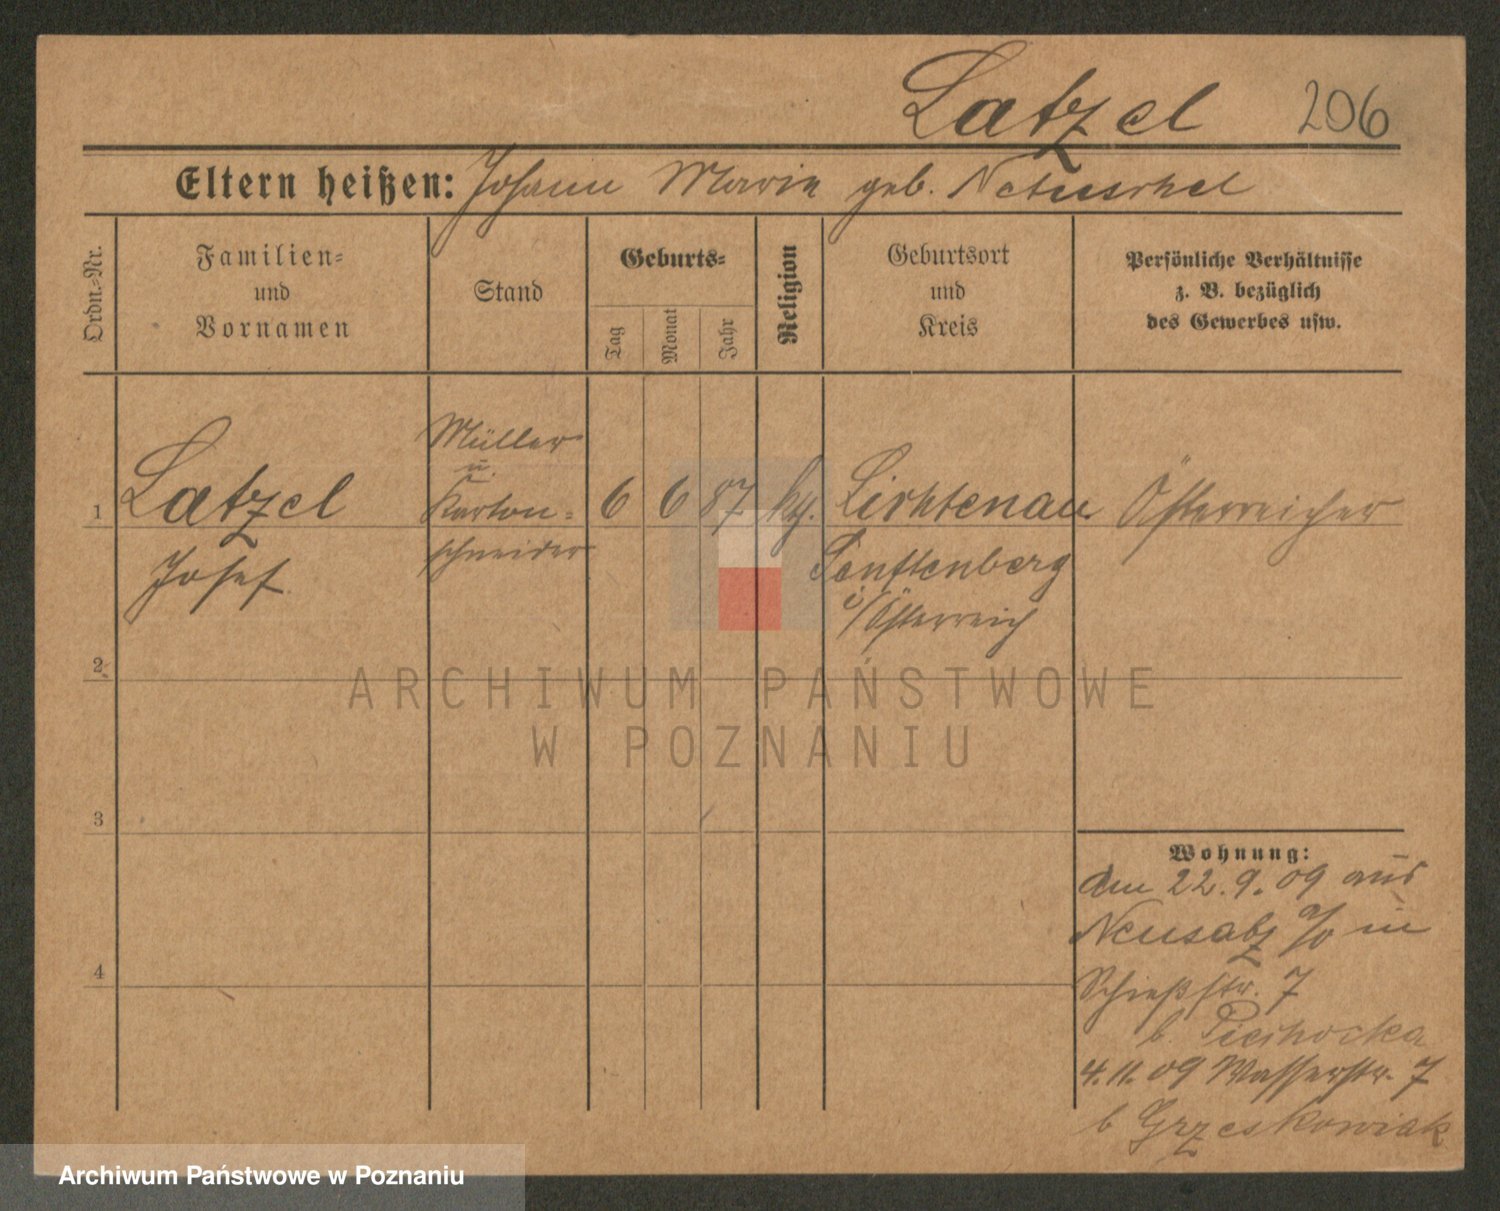 Latzel 206
Eltern heißen: Johann Marie geb.
Ordn.-Nr.
Familien-
und
Vornamen
Stand
Geburts-
Tag
Monat
Jahr
Religion
Geburtsort
und
Kreis
Persönliche Verhältnisse
z. B. bezüglich
des Gewerbes usw.
Müller
u.
1 Latzel Karton- 6 6 87 Lichtenau Österreicher
schneider
Josef
Senftenberg
i/Österreich
2
3
4
Wohnung:
Am 22.9.09 aus
Neusalz a/o in
Schießstr. 7
b. Piechocka
4.11.09 Wasserstr. 7
b Grzeskowiak
ARCHIWUM PAŃSTWOWE
W POZNANIU
Archiwum Państwowe w Poznaniu